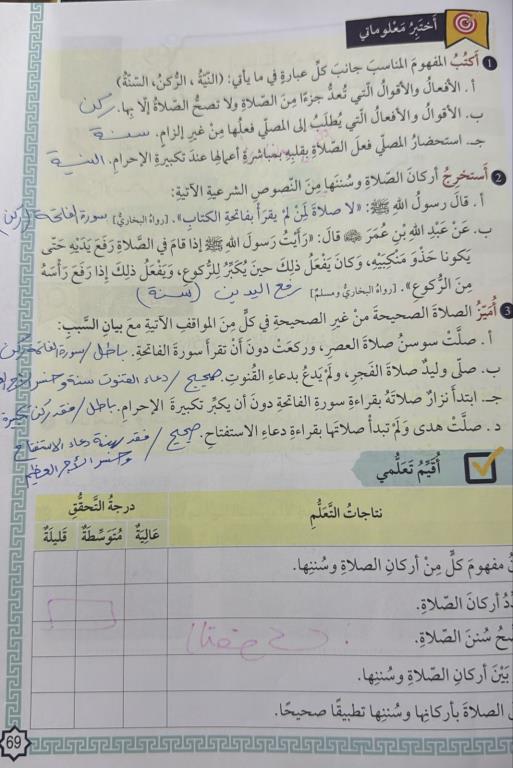 أختبر معلوماتي
1 أكتُبُ المفهومَ المناسبَ جانبَ كلِّ عبارةٍ في ما يأتي: (النيّةُ، الركنُ، السّنّةُ)
أ. الأفعالُ والأقوالُ الّتي تُعدُّ جزءًا مِنَ الصّلاةِ ولا تصحُّ الصّلاةُ إلّا بِها. ركن
ب. الأقوالُ والأفعالُ الّتي يُطلَبُ إلى المصلّي فعلُها مِنْ غيرِ إلزامٍ. سنة
جـ. استحضارُ المصلّي فعلَ الصّلاةِ بقلبِهِ بمباشرةِ أعمالِها عندَ تكبيرةِ الإحرامِ. النية
2 أَستخرِجُ أركانَ الصّلاةِ وسُننَها مِنَ النّصوصِ الشرعيةِ الآتيةِ:
أ. قالَ رسولُ اللهِ ﷺ: «لا صلاةَ لِمَنْ لمْ يقرَأْ بفاتحةِ الكتابِ». [رواهُ البخاريُّ] سورة الفاتحة (ركن
ب. عَنْ عبدِ اللهِ بْنِ عُمرَ قالَ: «رَأَيْتُ رَسولَ اللهِ ﷺ إذا قامَ في الصَّلاةِ رَفَعَ يَدَيْهِ حَتّى
يَكونا حَذْوَ مَنْكِبَيْهِ، وَكانَ يَفْعَلُ ذلِكَ حينَ يُكَبِّرُ لِلرُّكوعِ، وَيَفْعَلُ ذلِكَ إذا رَفَعَ رَأْسَهُ
مِنَ الرُّكوعِ». [رواهُ البخاريُّ ومسلمٌ] رفع اليدين (سنة)
3 أُمَيِّزُ الصلاةَ الصحيحةَ مِنْ غيرِ الصحيحةِ في كلٍّ مِنَ المواقفِ الآتيةِ معَ بيانِ السّببِ:
أ. صلّتْ سوسنُ صلاةَ العصرِ، وركعَتْ دونَ أنْ تقرأَ سورةَ الفاتحةِ. باطل / سورة الفاتحة ركن
ب. صلّى وليدٌ صلاةَ الفجرِ، ولَمْ يَدعُ بدعاءِ القُنوتِ. صحيح / دعاء القنوت سنة وخسر الأجر
جـ. ابتدأَ نزارٌ صلاتَهُ بقراءةِ سورةِ الفاتحةِ دونَ أنْ يكبّرَ تكبيرةَ الإحرامِ. باطل / فقد ركن تكبيرة
د. صلّتْ هدى ولَمْ تبدأْ صلاتَها بقراءةِ دعاءِ الاستفتاحِ. صحيح / فقد سنة دعاء الاستفتاح
وخسر الأجر العظيم
أُقَيِّمُ تَعَلُّمي
نتاجاتُ التَّعَلُّمِ
درجةُ التَّحقُّقِ
عاليَةٌ مُتَوَسِّطَةٌ قَليلَةٌ
مفهومَ كلٍّ مِنْ أركانِ الصلاةِ وسُننِها.
أركانَ الصّلاةِ.
سُننَ الصّلاةِ.
بَيْنَ أركانِ الصّلاةِ وسُننِها.
الصلاةَ بأركانِها وسُننِها تطبيقًا صحيحًا.
69